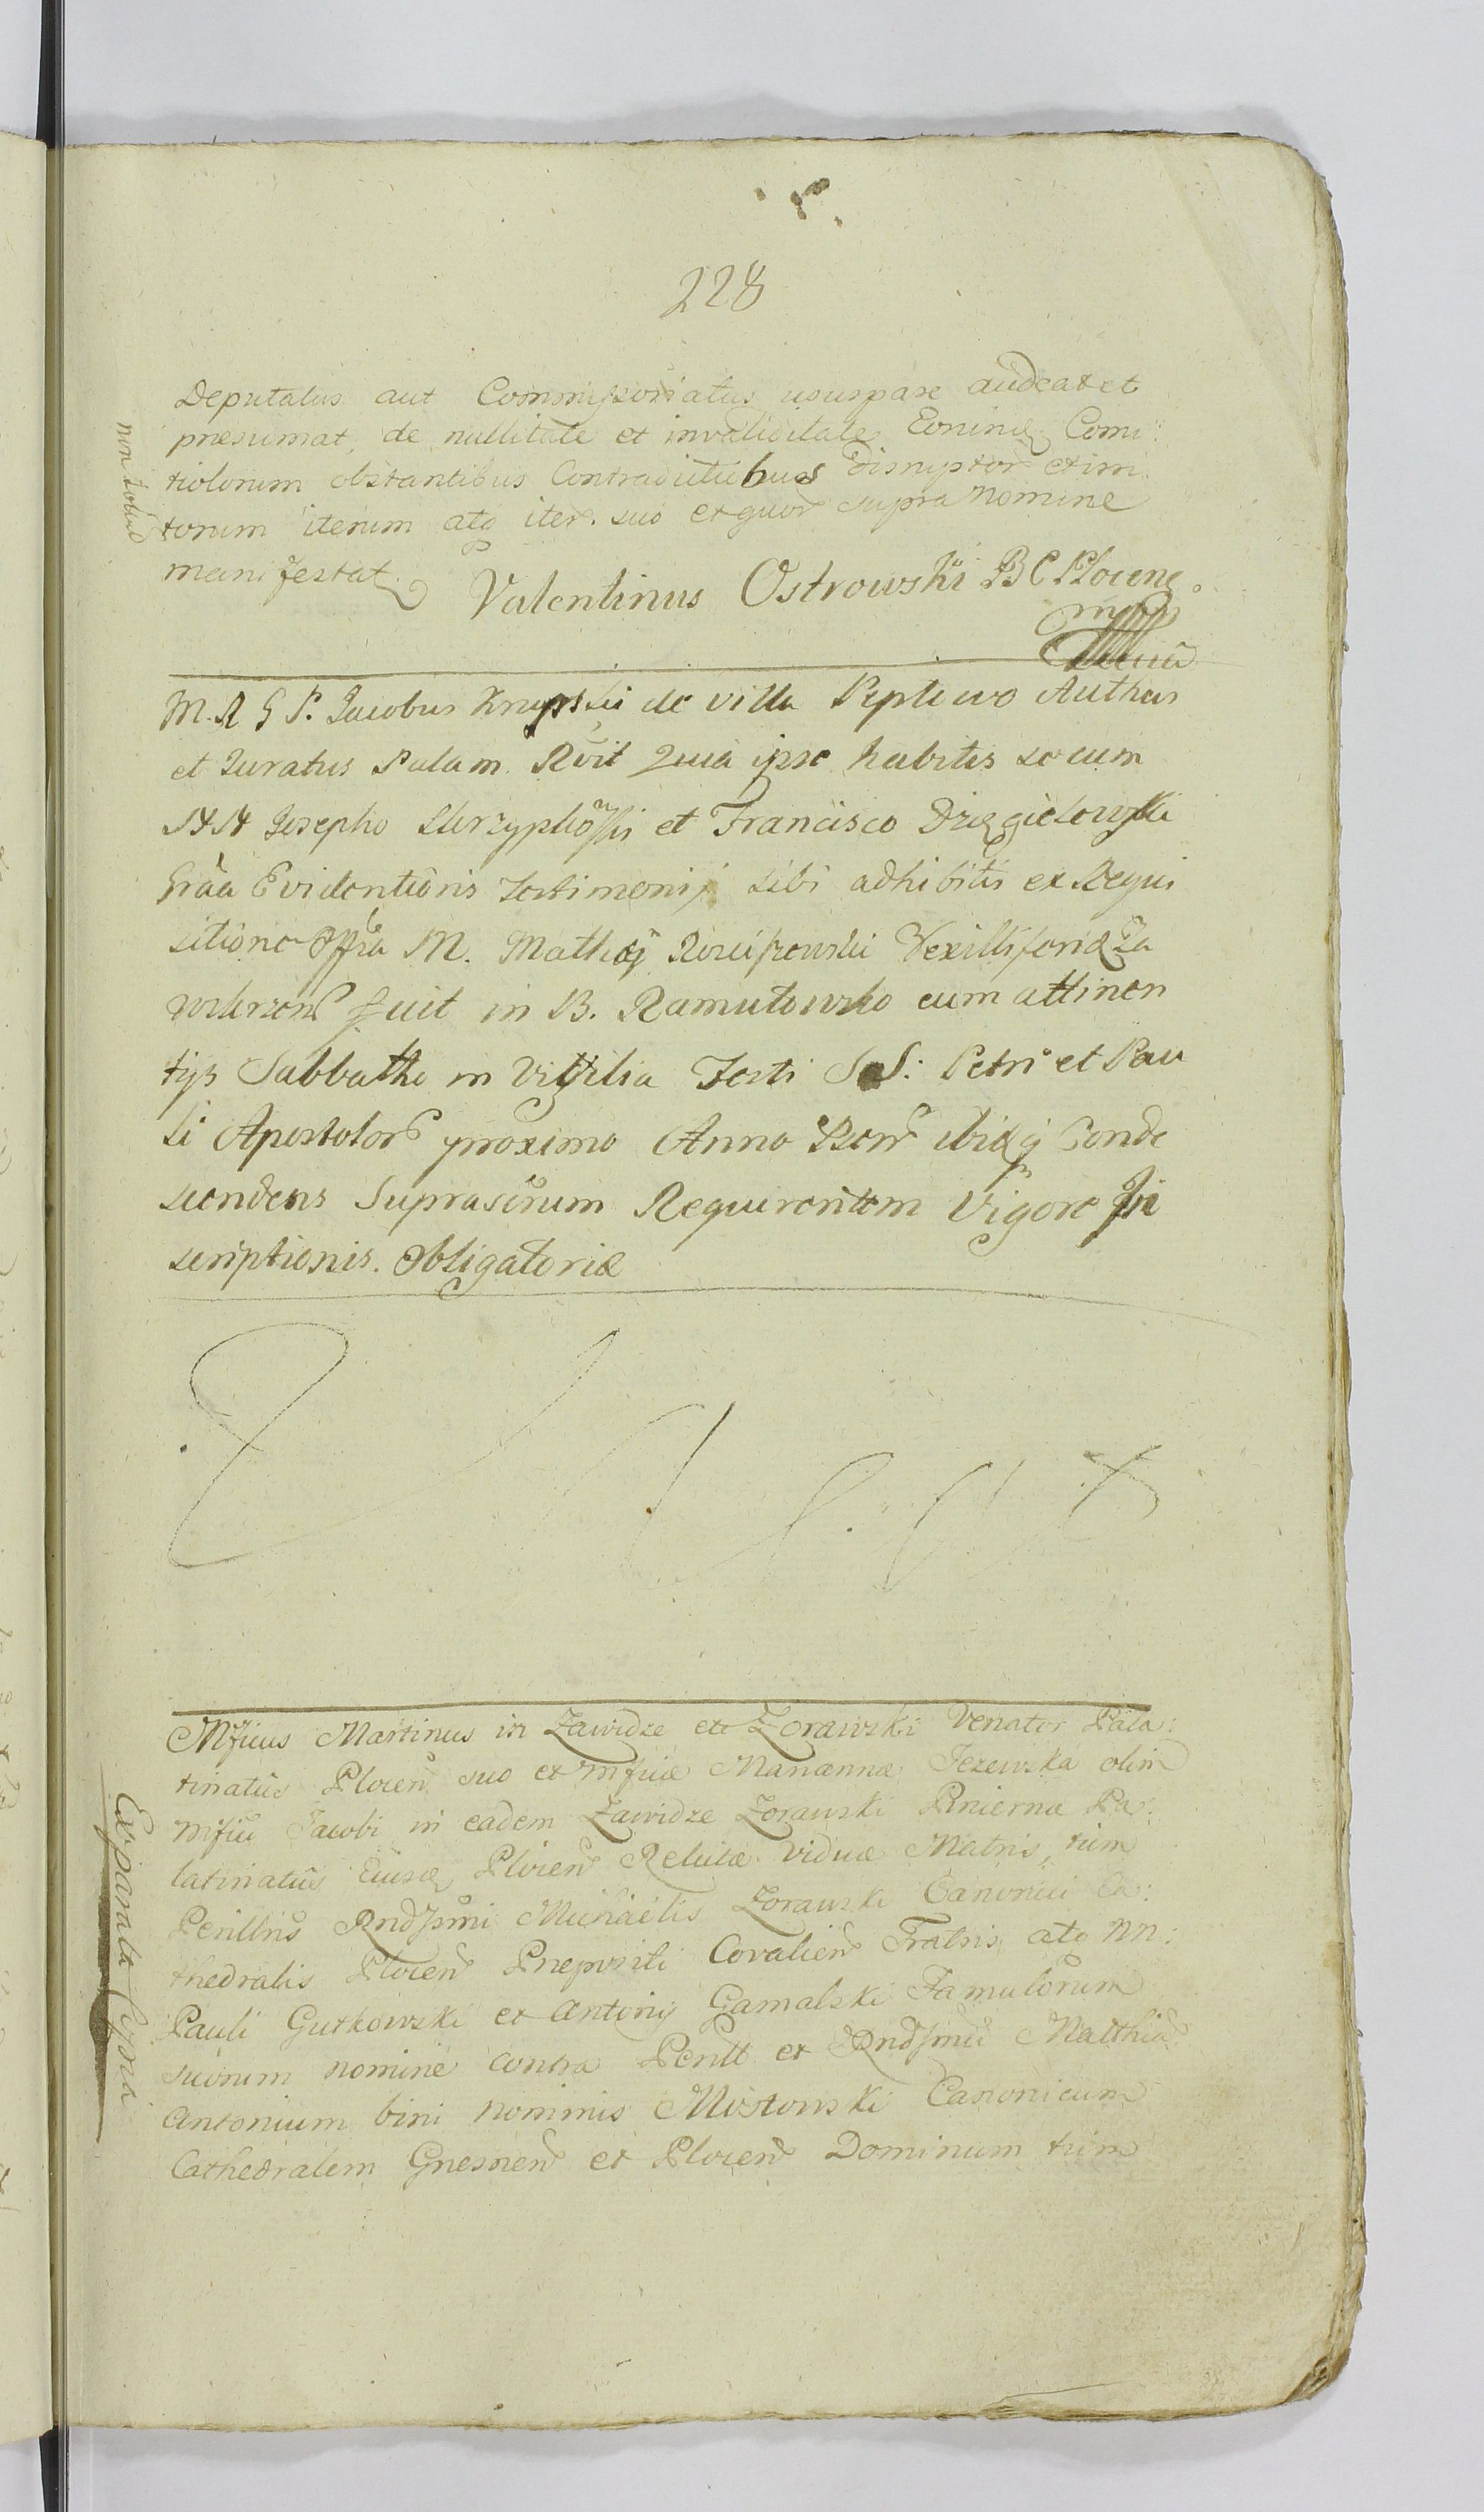 228
Deputatus aut Commissoriatus usurpare audeat et
presumat, de nullitate et invaliditate Eorundq Comi:
tiolorum obstantibus Contradictibus disruptor et im
non solus
torum iterum atq iter. suo et quor supra nomine
manifestat
Valentinus Ostrowski B C Plocens
mpp
M. R G P. Jacobus de villa Authus
et Juratus Palam. Rvit Quia ipse habitis secum
Josepho et Francisco Dzięgielowski
Grãa Evidentioris testimonij sibi adhibitis ex Requi
sitione Offria M. Mathæj Vexilliferidæ Za
fuit in B. Ramutowko cum attinen
tijs Sabbatho in Vigilia Festi S S: Petri et Pau
li Apostolor proximo Anno ibidq Conde
scendens Suprascrum Requirentem Vigore In
scriptionis. Obligatoriæ
Mficus Martinus in Zawidze etc Zorawski Venator Pala:
tinatus Plocen suo et Mficæ Mariannæ Jezewska olim
Mfici Jacobi in eadem Zawidze Zorawski Pincernæ Pa:
latinatus Eiusdq Plocen Relictæ viduæ Matris, tum
Perillris Rndssmi Michaelis Zorawski Canonici Ca:
thedralis Plocen Prepositi Fratris, atq NN:
Pauli Gutkowski et Antonij Gamalski Famulorum
suorum nomine contra Perill et Rndssmu Matthia
Antonium bini nominis Mostowski Canonicum
Cathedralem Gnesnen et Plocen Dominum tum